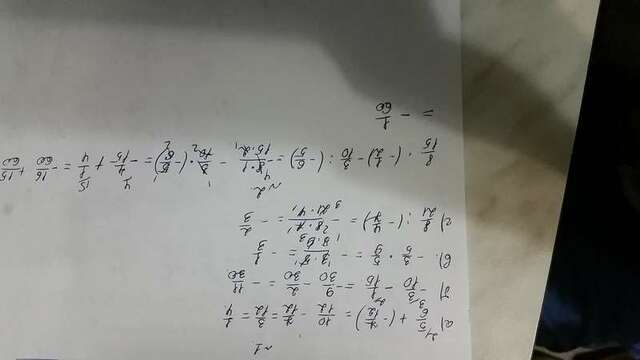 ~1
а) 5/6 + (-7/12) = 10/12 - 7/12 = 3/12 = 1/4
- 3/10 - 1/15 = - 9/30 - 2/30 = - 11/30
в) - 3/5 · 5/9 = - 1/3
г) 8/21 : (- 4/7) = - 8·7/21·4 = - 2/3
~2
8/15 · (- 1/2) - 3/10 : (- 6/5) = - 8·1/15·2 - 3/10 · (- 5/6) = - 4/15 + 1/4 = - 16/60 + 15/60
= - 1/60